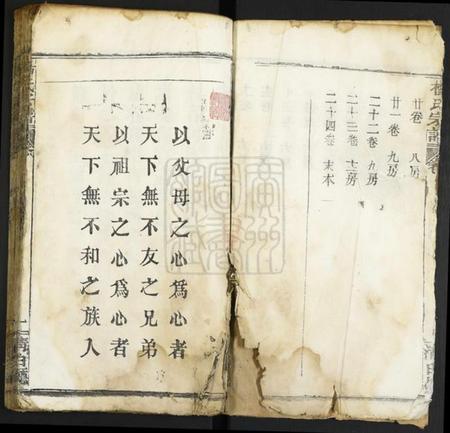 氏宗譜
廿卷 八房
廿一卷 九房
二十二卷 九房
二十三卷 十二房
二十四卷 末本
以父母之心爲心者
天下無不友之兄弟
以祖宗之心爲心者
天下無不和之族人